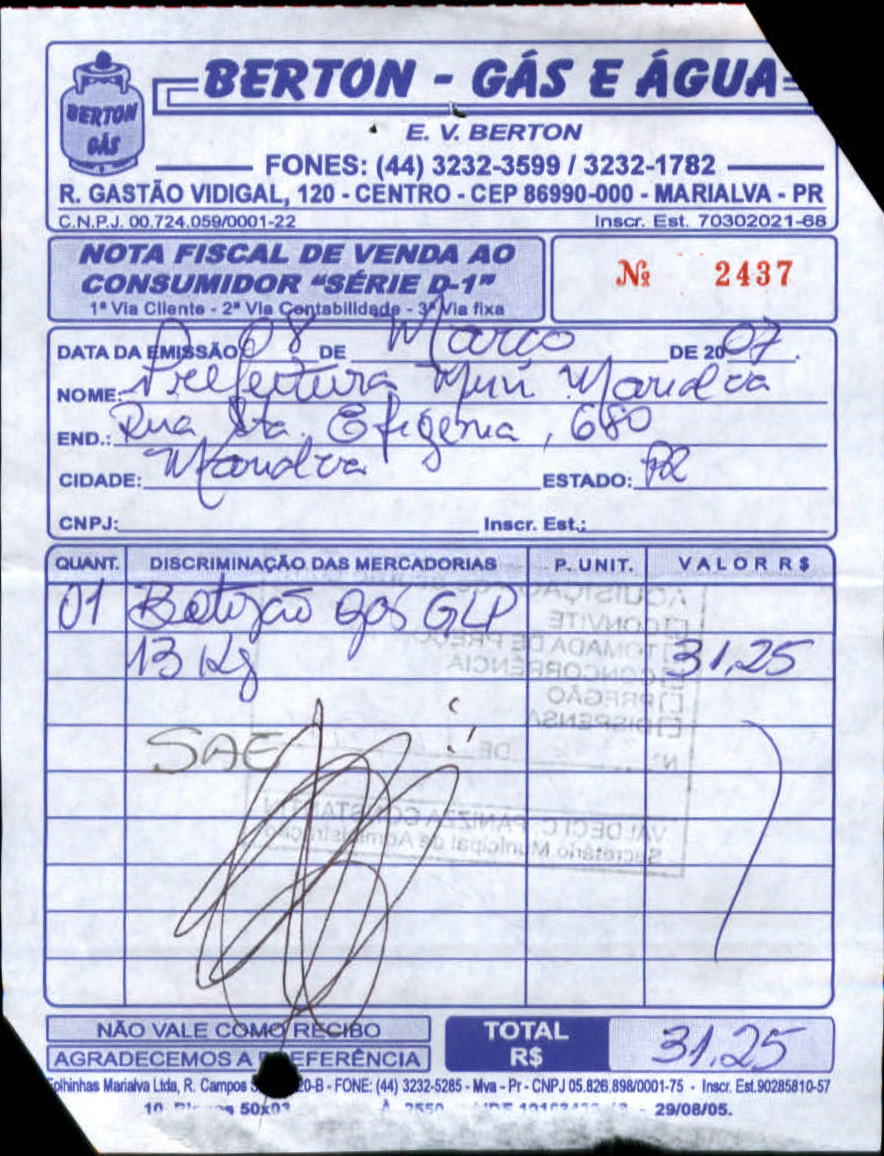 BERTON - GÁS E ÁGUA
BERTON
GÁS
E. V. BERTON
FONES: (44) 3232-3599 / 3232-1782
R. GASTÃO VIDIGAL, 120 - CENTRO - CEP 86990-000 - MARIALVA - PR
C.N.P.J. 00.724.059/0001-22 Inscr. Est. 70302021-68
NOTA FISCAL DE VENDA AO
CONSUMIDOR "SÉRIE D-1"
1ª Via Cliente - 2ª Via Contabilidade - 3ª Via fixa
Nº 2437
DATA DA EMISSÃO 08 DE Março DE 2007.
NOME: Prefeitura Mun Marialva
END.: Rua Sta. Efigênia, 680
CIDADE: Marialva ESTADO: PR
CNPJ: Inscr. Est.:
QUANT. DISCRIMINAÇÃO DAS MERCADORIAS P. UNIT. VALOR R$
01 Botijão gás GLP
13 Kg 31,25
AQUISIÇÃO
CONVITE
TOMADA DE PREÇO
CONCORRÊNCIA
PREGÃO
DISPENSA
Nº DE
SAE
VALDECI C. PANIZZA CONSTANTIN
Secretário Municipal de Administração
NÃO VALE COMO RECIBO
AGRADECEMOS A PREFERÊNCIA
TOTAL
R$ 31,25
olhinhas Marialva Ltda, R. Campos 20-B - FONE: (44) 3232-5285 - Mva - Pr - CNPJ 05.826.898/0001-75 - Inscr. Est.90285810-57
10 50x03 - 29/08/05.